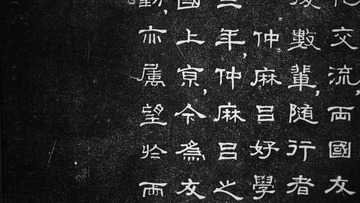 交流,両國友
數輩,隨行者
仲麻呂好學
年,仲麻呂之
國上京,今為友
亦属望於両